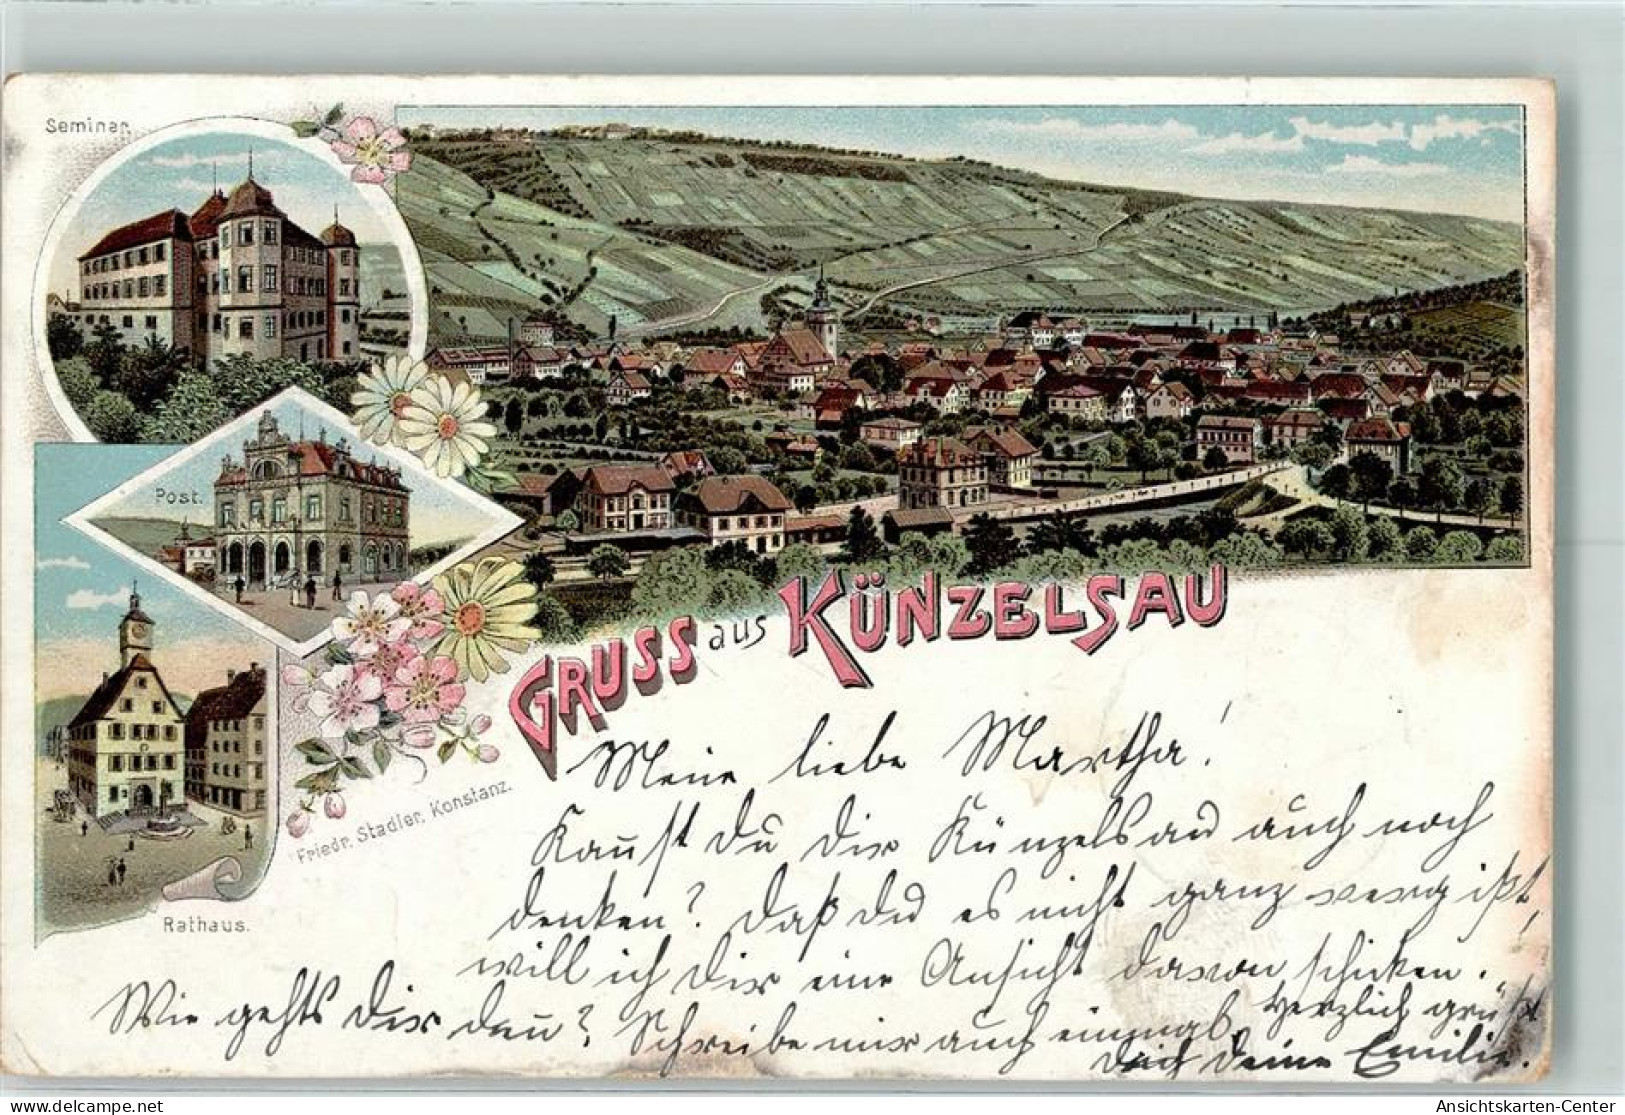 Seminar.
Post.
Rathaus.
GRUSS aus KÜNZELSAU
Friedr. Stadler, Konstanz.
Meine liebe Martha!
Kannst du dir Künzelsau auch noch
denken? Daß du es nicht ganz vergißt,
will ich dir eine Ansicht davon schicken.
Wie gehts dir denn? Schreibe mir auch einmal. Herzlich grüßt
dich deine Emilie.
delcampe.net
Ansichtskarten-Center